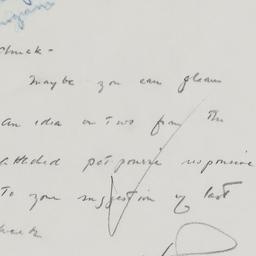 Chuck -
Maybe you can glean
an idea or two from the
attached potpourri responsive
to your suggestion of last
week